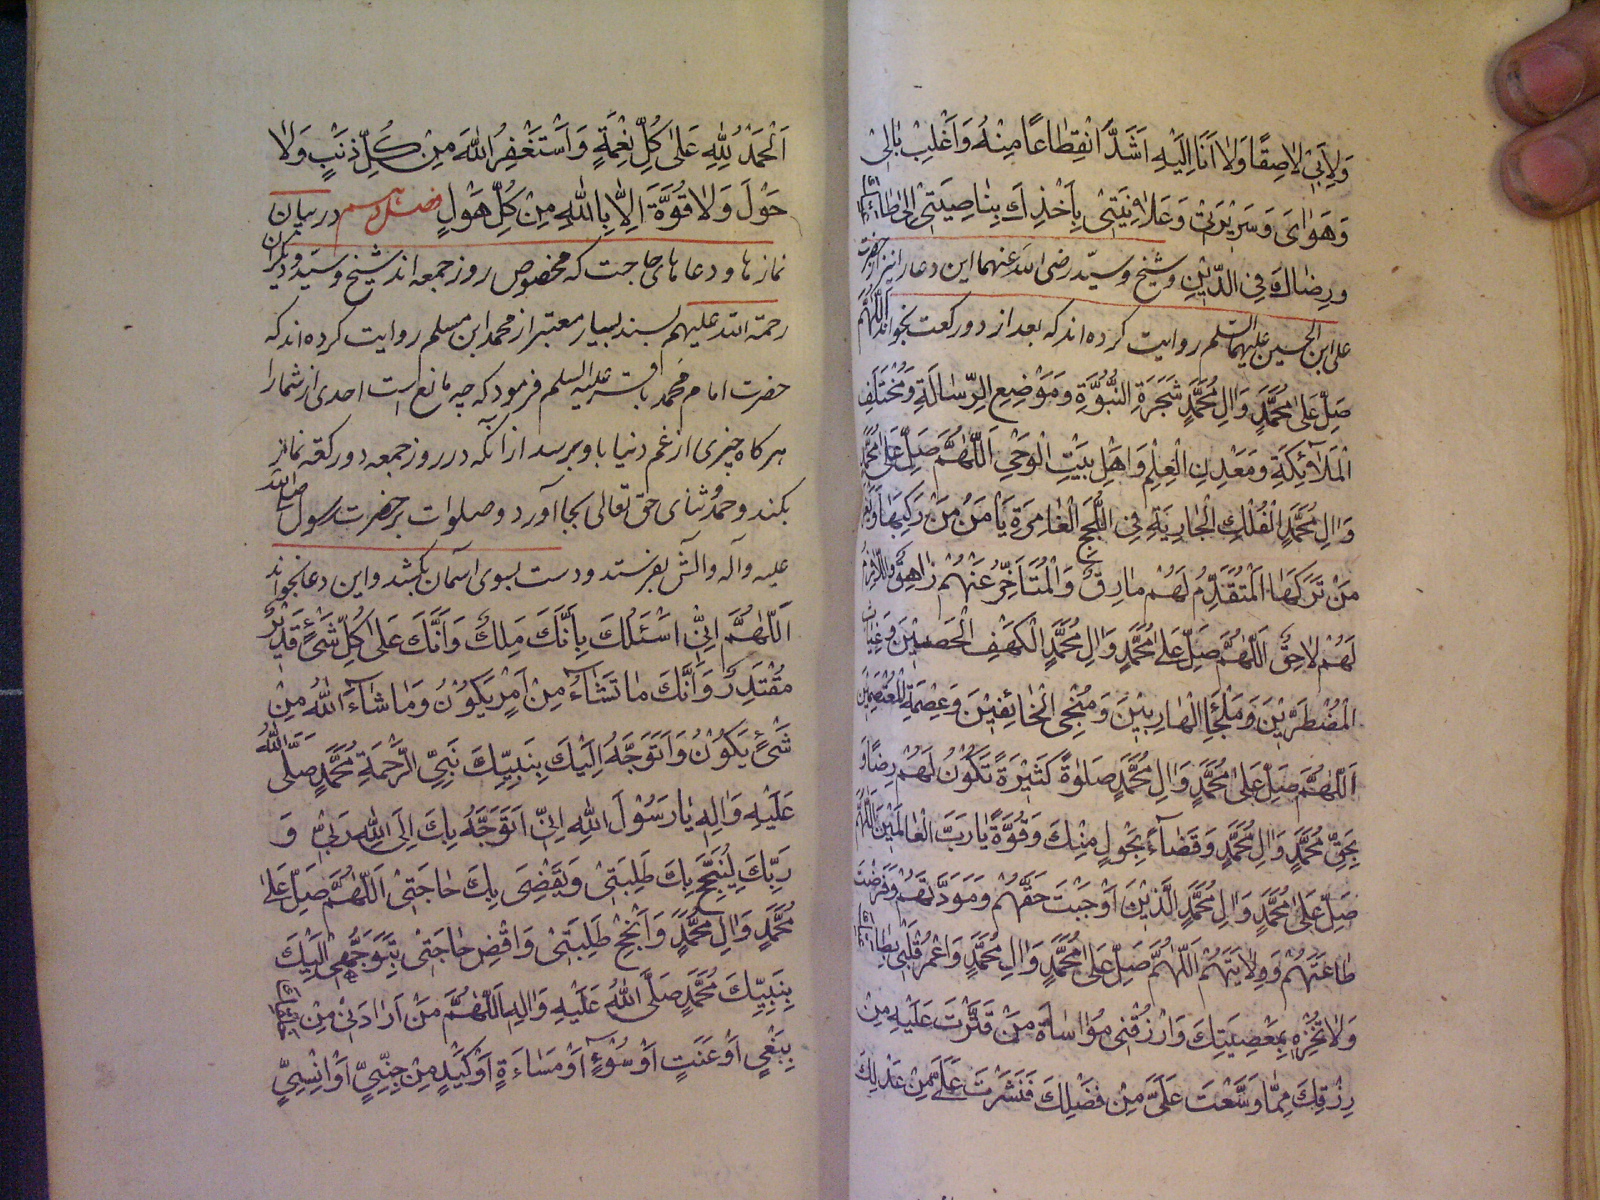 وَلِاَبِیْ لاصِقًا وَلااَنَا اِلَیْهِ اَشَدَّ انْقِطَاعًا مِنْهُ وَاَغْلِبْ بَالِیْ
وَهَوَایَ وَسَرِیْرَتِیْ وَعَلانِیَتِیْ بِاَخْذِكَ بِنَاصِیَتِیْ اِلیٰ طَاعَتِكَ
وَرِضَاكَ فِی الدّیْنِ وشیخ وسیّد رضی الله عنهما این دعا را نیز از حضرت
علی ابن الحسین علیهما السلم روایت کرده اند که بعد از دو رکعت بخواند اَللّٰهُمَّ
صَلِّ عَلیٰ مُحَمَّدٍ وَالِ مُحَمَّدٍ شَجَرَةِ النُّبُوَّةِ وَمَوْضِعِ الرِّسَالَةِ وَمُخْتَلَفِ
الْمَلٰٓائِكَةِ وَمَعْدِنِ الْعِلْمِ وَاَهْلِ بَیْتِ الْوَحْیِ اَللّٰهُمَّ صَلِّ عَلیٰ مُحَمَّدٍ
وَالِ مُحَمَّدٍ الْفُلْكِ الْجَارِیَةِ فِی اللُّجَجِ الْغَامِرَةِ یَاْمَنُ مَنْ رَكِبَهَا وَیَغْرَقُ
مَنْ تَرَكَهَا اَلْمُتَقَدِّمُ لَهُمْ مَارِقٌ وَالْمُتَاَخِّرُ عَنْهُمْ زَاهِقٌ وَاللّازِمُ
لَهُمْ لاحِقٌ اَللّٰهُمَّ صَلِّ عَلیٰ مُحَمَّدٍ وَالِ مُحَمَّدٍ الْكَهْفِ الْحَصِیْنِ وَغِیَاثِ
الْمُضْطَرِّیْنَ وَمَلْجَاِ الْهَارِبِیْنَ وَمُنْجِی الْخَائِفِیْنَ وَعِصْمَةِ الْمُعْتَصِمِیْنَ
اَللّٰهُمَّ صَلِّ عَلیٰ مُحَمَّدٍ وَالِ مُحَمَّدٍ صَلوٰةً كَثِیْرَةً تَكُوْنُ لَهُمْ رِضًا وَ
بِحَقِّ مُحَمَّدٍ وَالِ مُحَمَّدٍ وَقَضَآءً بِحَوْلٍ مِنْكَ وَقُوَّةً یَارَبَّ الْعَالَمِیْنَ اَللّٰهُمَّ
صَلِّ عَلیٰ مُحَمَّدٍ وَالِ مُحَمَّدٍ الَّذِیْنَ اَوْجَبْتَ حَقَّهُمْ وَمَوَدَّتَهُمْ وَفَرَضْتَ
طَاعَتَهُمْ وَوِلایَتَهُمْ اَللّٰهُمَّ صَلِّ عَلیٰ مُحَمَّدٍ وَالِ مُحَمَّدٍ وَاعْمُرْ قَلْبِیْ بِطَاعَتِكَ
وَلاتُخْزِهِ بِمَعْصِیَتِكَ وَارْزُقْنِیْ مُوَاسَاةَ مَنْ قَتَّرْتَ عَلَیْهِ مِنْ
رِزْقِكَ مِمَّا وَسَّعْتَ عَلَیَّ مِنْ فَضْلِكَ فَنَشَرْتَ عَلَیَّ مِنْ عَدْلِكَ
اَلْحَمْدُ لِلّٰهِ عَلیٰ كُلِّ نِعْمَةٍ وَاَسْتَغْفِرُ اللّٰهَ مِنْ كُلِّ ذَنْبٍ وَلا
حَوْلَ وَلا قُوَّةَ اِلّا بِاللّٰهِ مِنْ كُلِّ هَوْلٍ فصل در بیان
نمازها و دعاهای حاجت که مخصوص روز جمعه اند شیخ و سیّد و دیگران
رحمة الله علیهم بسند بسیار معتبر از محمد ابن مسلم روایت کرده اند که
حضرت امام محمد باقر علیه السلم فرمود که چه مانع است احدی از شما را
هرکاه چیزی از غم دنیا باو برسد از آنکه در روز جمعه دو رکعت نماز
بکند و حمد و ثنای حق تعالی بجا آورد و صلوات بر حضرت رسول صلی الله
علیه وآله وآلش بفرستد و دست بسوی آسمان بکشد و این دعا بخواند
اَللّٰهُمَّ اِنِّیْ اَسْئَلُكَ بِاَنَّكَ مَلِكٌ وَاَنَّكَ عَلیٰ كُلِّ شَیْءٍ قَدِیْرٌ
مُقْتَدِرٌ وَاَنَّكَ مَا تَشَآءُ مِنْ اَمْرٍ یَكُوْنُ وَمَا شَآءَ اللّٰهُ مِنْ
شَیْءٍ یَكُوْنُ وَاَتَوَجَّهُ اِلَیْكَ بِنَبِیِّكَ نَبِیِّ الرَّحْمَةِ مُحَمَّدٍ صَلَّی اللّٰهُ
عَلَیْهِ وَالِهِ یَا رَسُوْلَ اللّٰهِ اِنِّیْ اَتَوَجَّهُ بِكَ اِلَی اللّٰهِ رَبِّیْ وَ
رَبِّكَ لِیُنْجِحَ بِكَ طَلِبَتِیْ وَیَقْضِیَ بِكَ حَاجَتِیْ اَللّٰهُمَّ صَلِّ عَلیٰ
مُحَمَّدٍ وَالِ مُحَمَّدٍ وَاَنْجِحْ طَلِبَتِیْ وَاقْضِ حَاجَتِیْ بِتَوَجُّهِیْ اِلَیْكَ
بِنَبِیِّكَ مُحَمَّدٍ صَلَّی اللّٰهُ عَلَیْهِ وَالِهِ اَللّٰهُمَّ مَنْ اَرَادَنِیْ مِنْ خَلْقِكَ
بِبَغْیٍ اَوْعَنَتٍ اَوْ سُوْءٍ اَوْ مَسَاءَةٍ اَوْكَیْدٍ مِنْ جِنِّیٍّ اَوْ اِنْسِیٍّ